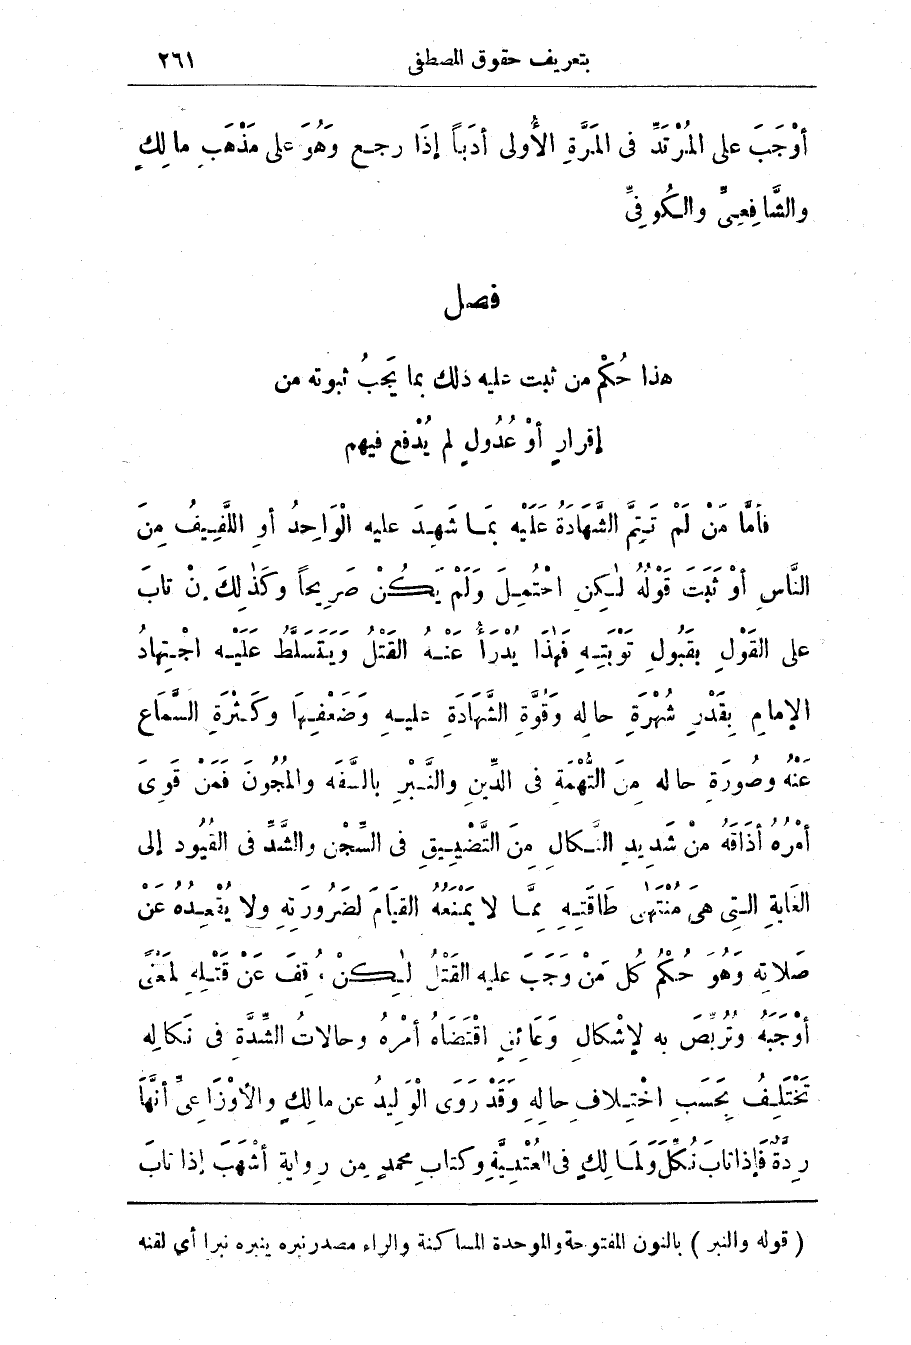 بتعريف حقوق المصطفى ٢٦١
أوْجَبَ على المُرْتَدِّ فى المَرَّةِ الأُولى أدَباً إذَا رجع وَهُوَ على مَذْهَبِ مالِكٍ
والشَّافِعِىِّ والكُوفِىِّ
فصل
هذا حُكْمُ من ثبت عليه ذلك بما يَجِبُ ثبوته من
إقرارٍ أوْ عُدُولٍ لم يُدْفع فيهم
فأمَّا مَنْ لَمْ تَتِمَّ الشَّهَادَةُ عَلَيْهِ بِمَا شَهِدَ عليه الْوَاحِدُ أو اللَّفِيفُ مِنَ
النَّاسِ أوْ ثَبَتَ قَوْلُهُ لٰكِنِ احْتُمِلَ وَلَمْ يَكُنْ صَرِيحاً وكَذٰلِكَ نْ تابَ
على القَوْلِ بقَبُولِ تَوْبَتِهِ فهٰذَا يُدْرَأُ عَنْهُ القَتْلُ وَيَتَسَلَّطُ عَلَيْهِ اجْتِهادُ
الإمامِ بِقَدْرِ شُهْرَةِ حالِهِ وَقُوَّةِ الشَّهَادَةِ عليهِ وَضَعْفِهَا وكَثْرَةِ السَّمَاعِ
عَنْهُ وصُورَةِ حاله مِنَ التُّهْمَةِ فى الدِّينِ والنَّبْرِ بالسَّفَه والمُجُونَ فَمَنْ قَوِىَ
أمْرُهُ أذَاقَهُ مِنْ شَدِيدِ النَّكالِ مِنَ التَّضْيِيقِ فى السِّجْنِ والشَّدِّ فى القُيُود إلى
الغَايةِ الَّتِى هِىَ مُنْتَهٰى طَاقَتِهِ مِمَّا لا يَمْنَعُهُ القِيَامَ لضَرُورَتِهِ ولا يُقْعِدُه عَنْ
صَلاتِه وَهُوَ حُكْمُ كُل مَنْ وَجَبَ عليه القَتْلُ لٰكِنْ وُقِفَ عَنْ قَتْلِهِ لمَعْنًى
أوْجَبَهُ وَتُرُبِّصَ به لإشْكالٍ وَعَائِقٍ اقْتَضَاهُ أمْرُهُ وحالاتُ الشِّدَّة فى نَكالِه
تَخْتَلِفُ بِحَسَبِ اخْتِلافِ حالِهِ وَقَدْ رَوَى الْوَلِيدُ عن مالِكٍ والأوْزَاعِىِّ أنَّهَا
رِدَّةٌ فَإذا تابَ نُكِّلَ ولمَالِكٍ فى العُتْبِيَّةِ وكتابِ محمدٍ مِن رِوايةِ أشْهَبَ إذا تابَ
( قوله والنبر ) بالنون المفتوحة والموحدة الساكنة والراء مصدر نبره ينبره نبرا أي لقنه